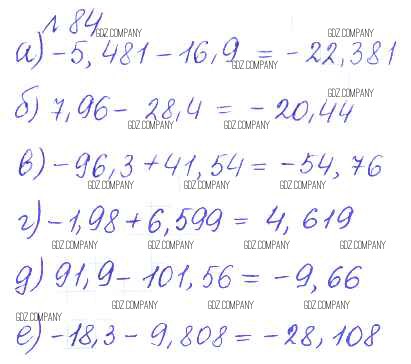 № 84
GDZ.COMPANY
а) -5,481 - 16,9 = -22,381
GDZ.COMPANY
GDZ.COMPANY
б) 7,96 - 28,4 = -20,44
GDZ.COMPANY GDZ.COMPANY
в) -96,3 + 41,54 = -54,76
GDZ.COMPANY GDZ.COMPANY GDZ.COMPANY
г) -1,98 + 6,599 = 4,619
GDZ.COMPANY GDZ.COMPANY GDZ.COMPANY GDZ.COMPANY
д) 91,9 - 101,56 = -9,66
GDZ.COMPANY GDZ.COMPANY GDZ.COMPANY
GDZ.COMPANY
е) -18,3 - 9,808 = -28,108